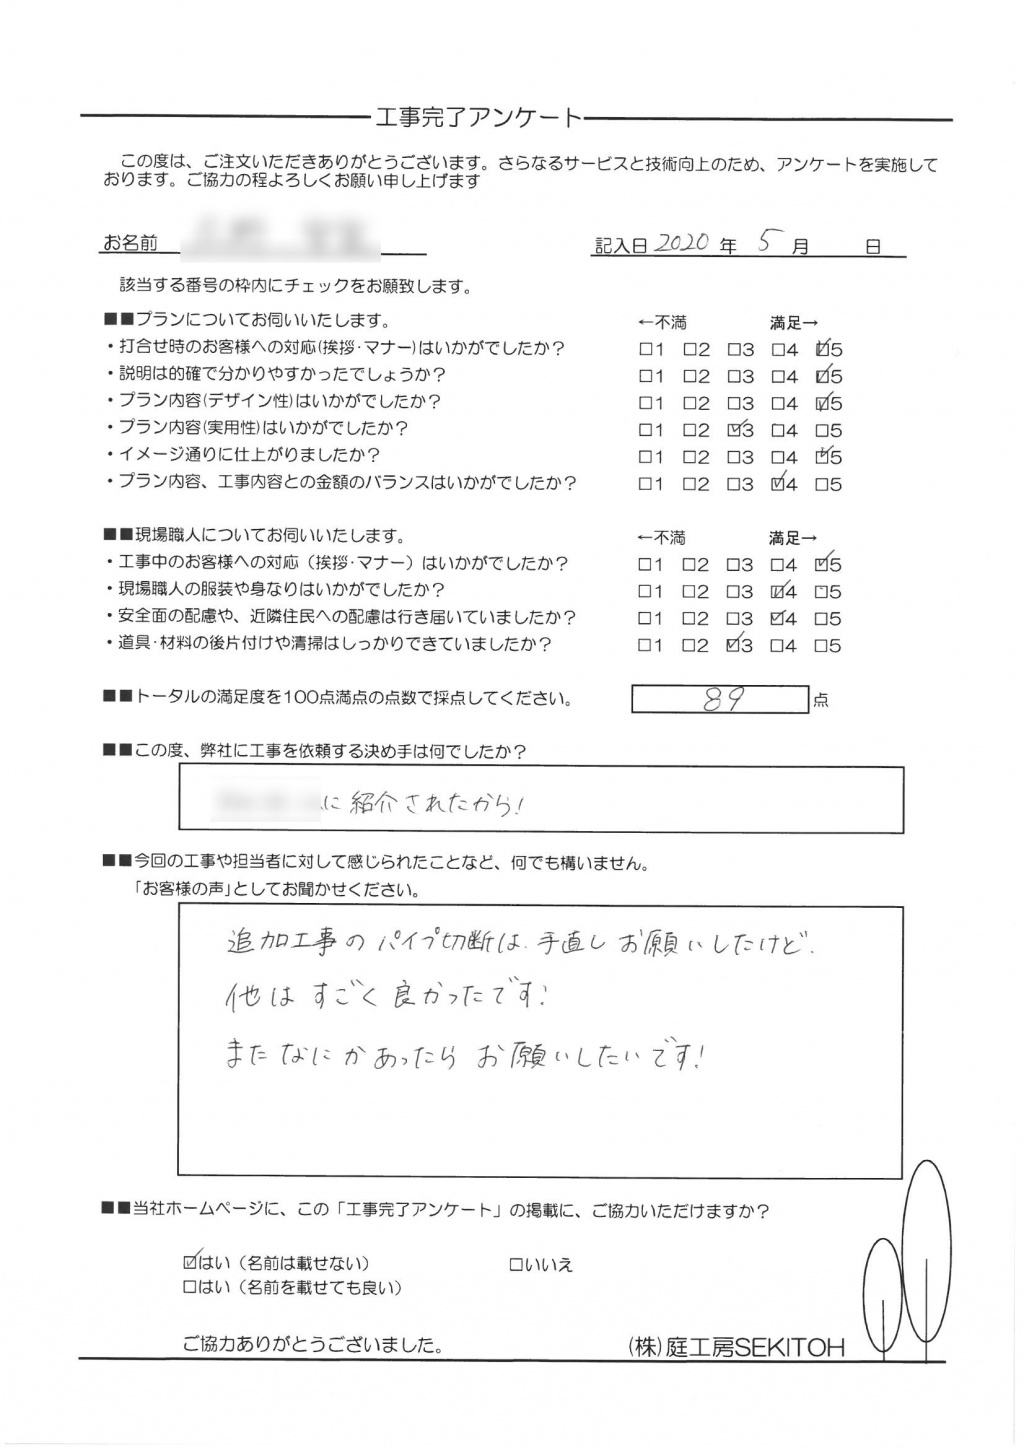 工事完了アンケート
この度は、ご注文いただきありがとうございます。さらなるサービスと技術向上のため、アンケートを実施して
おります。ご協力の程よろしくお願い申し上げます
お名前 記入日 2020 年 5 月 日
該当する番号の枠内にチェックをお願致します。
■■プランについてお伺いいたします。 ←不満 満足→
・打合せ時のお客様への対応(挨拶・マナー)はいかがでしたか? □1 □2 □3 □4 ☑5
・説明は的確で分かりやすかったでしょうか? □1 □2 □3 □4 ☑5
・プラン内容(デザイン性)はいかがでしたか? □1 □2 □3 □4 ☑5
・プラン内容(実用性)はいかがでしたか? □1 □2 ☑3 □4 □5
・イメージ通りに仕上がりましたか? □1 □2 □3 □4 ☑5
・プラン内容、工事内容との金額のバランスはいかがでしたか? □1 □2 □3 ☑4 □5
■■現場職人についてお伺いいたします。 ←不満 満足→
・工事中のお客様への対応（挨拶・マナー）はいかがでしたか? □1 □2 □3 □4 ☑5
・現場職人の服装や身なりはいかがでしたか? □1 □2 □3 ☑4 □5
・安全面の配慮や、近隣住民への配慮は行き届いていましたか? □1 □2 □3 ☑4 □5
・道具・材料の後片付けや清掃はしっかりできていましたか? □1 □2 ☑3 □4 □5
■■トータルの満足度を100点満点の点数で採点してください。 89 点
■■この度、弊社に工事を依頼する決め手は何でしたか?
に紹介されたから!
■■今回の工事や担当者に対して感じられたことなど、何でも構いません。
「お客様の声」としてお聞かせください。
追加工事の パイプ切断は、手直し お願いしたけど、
他は すごく 良かったです!
また なにか あったら お願いしたいです!
■■当社ホームページに、この「工事完了アンケート」の掲載に、ご協力いただけますか?
☑はい（名前は載せない） □いいえ
□はい（名前を載せても良い）
ご協力ありがとうございました。 (株)庭工房SEKITOH